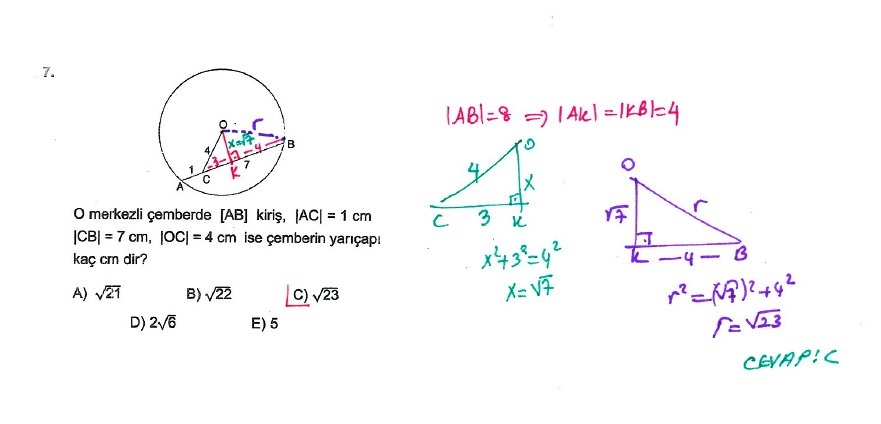 7.
O
r
4
x=√7
B
1
3
4
7
A
C
K
O merkezli çemberde [AB] kiriş, |AC| = 1 cm
|CB| = 7 cm, |OC| = 4 cm ise çemberin yarıçapı
kaç cm dir?
A) √21 B) √22 C) √23
D) 2√6 E) 5
|AB|=8 ⇒ |AK|=|KB|=4
O
4
x
C 3 K
x²+3²=4²
x=√7
O
√7
r
K —4— B
r²=(√7)²+4²
r=√23
CEVAP: C